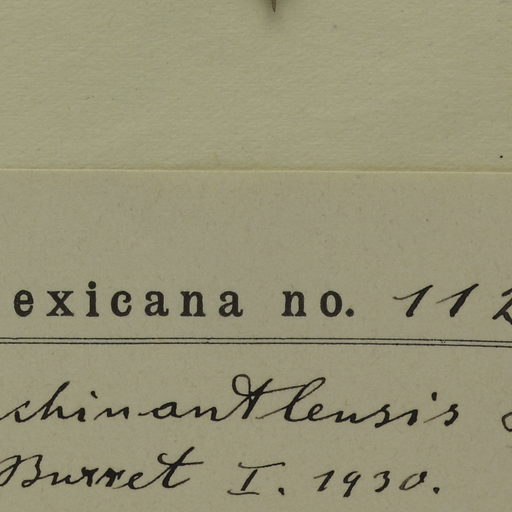 exicana no. 112
chinantlensis
Burret I. 1930.